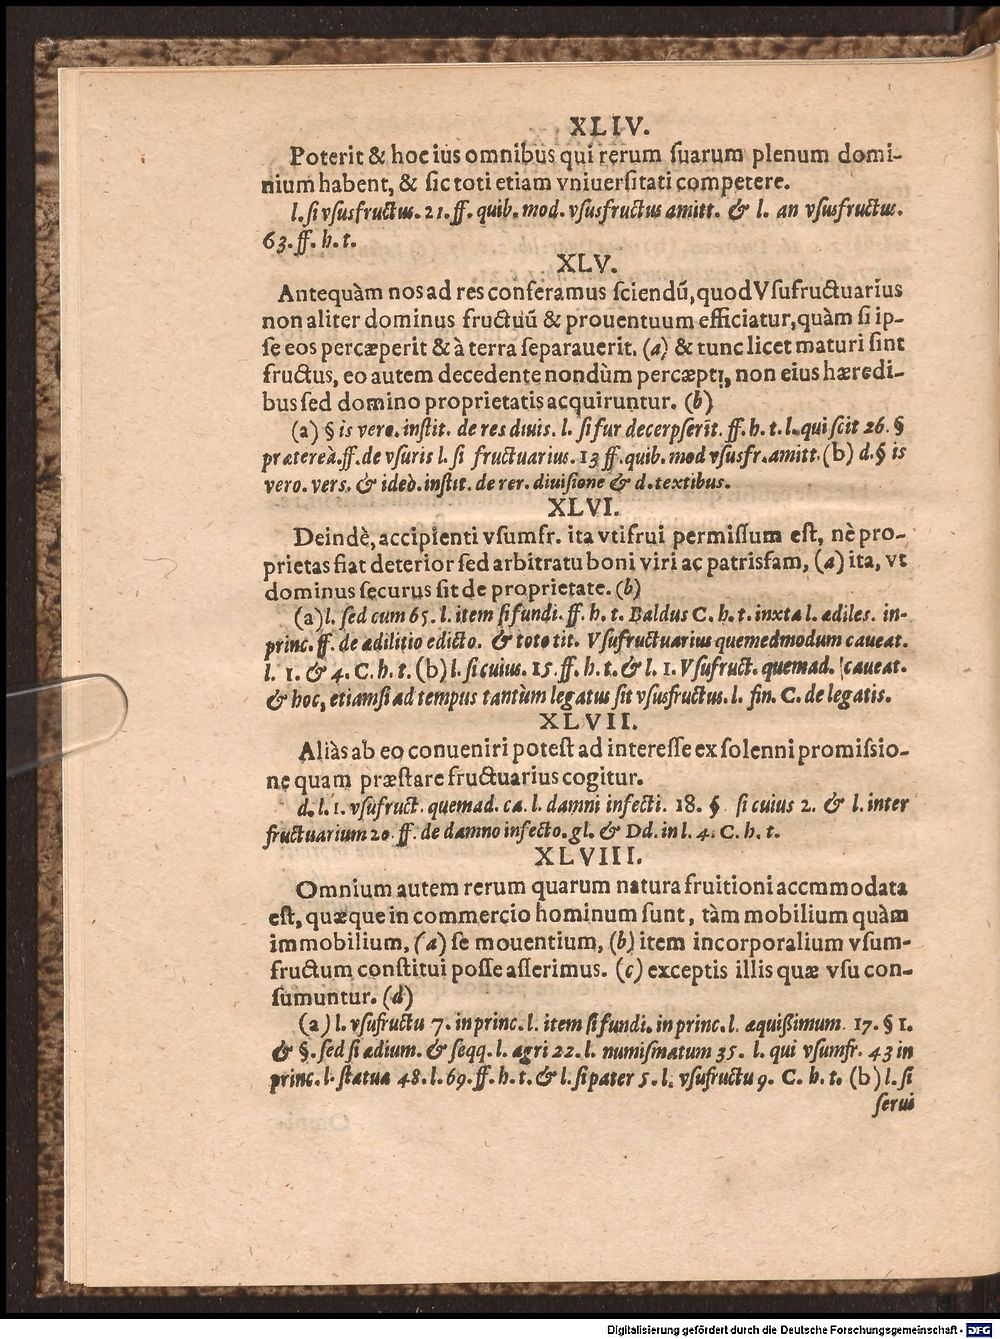 XLIV.
Poterit & hoc ius omnibus qui rerum ſuarum plenum domi-
nium habent, & ſic toti etiam vniuerſitati competere.
l. ſi vſusfructus. 21. ff. quib. mod. vſusfructus amitt. & l. an vſusfructus.
63. ff. h. t.
XLV.
Antequàm nos ad res conferamus ſciendū, quod Vſufructuarius
non aliter dominus fructuū & prouentuum efficiatur, quàm ſi ip-
ſe eos percæperit & à terra ſeparauerit. (a) & tunc licet maturi ſint
fructus, eo autem decedente nondùm percæpti, non eius hæredi-
bus ſed domino proprietatis acquiruntur. (b)
(a) § is vero. inſtit. de res diuis. l. ſi fur decerpſerit. ff. h. t. l. qui ſcit 26. §
præterea. ff. de vſuris l. ſi fructuarius. 13 ff. quib. mod vſusfr. amitt. (b) d. § is
vero. verſ. & ideò. inſtit. de rer. diuiſione & d. textibus.
XLVI.
Deindè, accipienti vſumfr. ita vtifrui permiſſum eſt, nè pro-
prietas fiat deterior ſed arbitratu boni viri ac patrisfam, (a) ita, vt
dominus ſecurus ſit de proprietate. (b)
(a) l. ſed cum 65. l. item ſi fundi. ff. h. t. Baldus C. h. t. inxta l. ædiles. in-
princ. ff. de ædilitio edicto. & toto tit. Vſufructuarius quemedmodum caueat.
l. 1. & 4. C. h. t. (b) l. ſi cuius. 15. ff. h. t. & l. 1. Vſufruct. quemad. caueat.
& hoc, etiamſi ad tempus tantùm legatus ſit vſusfructus. l. fin. C. de legatis.
XLVII.
Aliàs ab eo conueniri poteſt ad intereſſe ex ſolenni promiſsio-
ne quam præſtare fructuarius cogitur.
d. l. 1. vſufruct. quemad. ca. l. damni infecti. 18. §. ſi cuius 2. & l. inter
fructuarium 20. ff. de damno infecto. gl. & Dd. in l. 4. C. h. t.
XLVIII.
Omnium autem rerum quarum natura fruitioni accmmodata
eſt, quæque in commercio hominum ſunt, tàm mobilium quàm
immobilium, (a) ſe mouentium, (b) item incorporalium vſum-
fructum conſtitui poſſe aſſerimus. (c) exceptis illis quæ vſu con-
ſumuntur. (d)
(a) l. vſufructu 7. in princ. l. item ſi fundi. in princ. l. æquißimum. 17. § 1.
& §. ſed ſi ædium. & ſeqq. l. agri 22. l. numiſmatum 35. l. qui vſumfr. 43 in
princ. l. ſtatua 48. l. 69. ff. h. t. & l. ſi pater 5. l. vſufructu 9. C. h. t. (b) l. ſi
ſerui
Digitalisierung gefördert durch die Deutsche Forschungsgemeinschaft - DFG